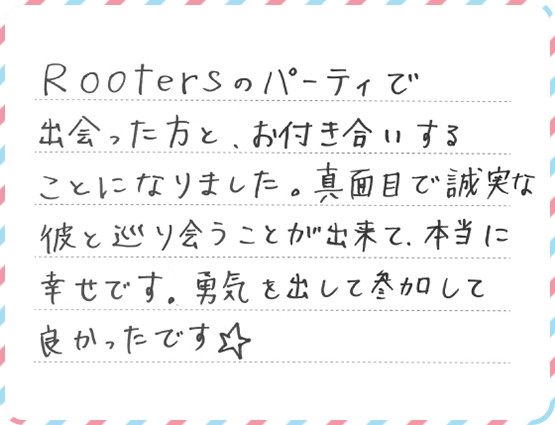 Rootersのパーティで
出会った方と、お付き合いする
ことになりました。真面目で誠実な
彼と巡り会うことが出来て、本当に
幸せです。勇気を出して参加して
良かったです☆